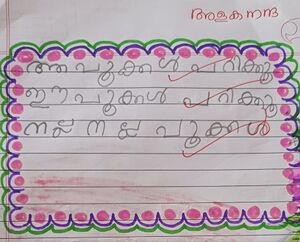 അളകനന്ദ
ആ പൂക്കൾ പറിക്കൂ
ഈ പൂക്കൾ പറിക്കൂ
നല്ല നല്ല പൂക്കൾ